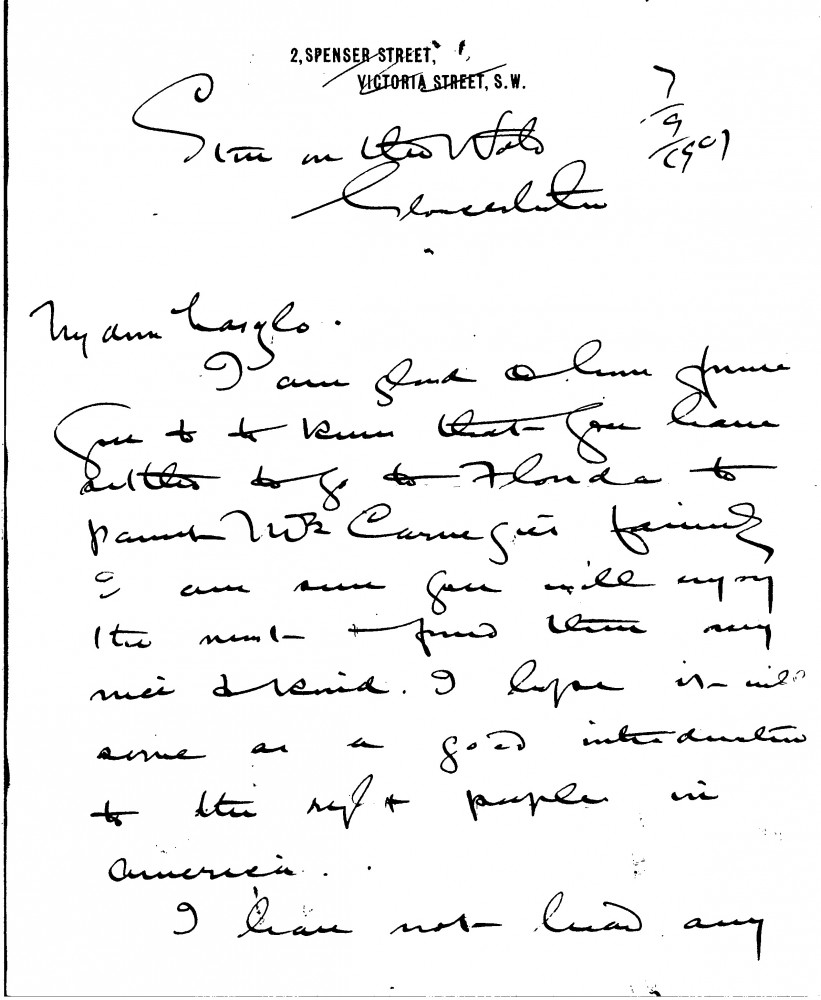 2, SPENSER STREET,
VICTORIA STREET, S.W.
7/9/1907
Stow on the Wold
Gloucestershire
My dear Laszlo.
I am glad to have from
you & to know that you have
settled to go to Florida to
paint Mrs Carnegies family
I am sure you will enjoy
the visit & find them very
nice & kind. I hope it will
serve as a good introduction
to the right people in
America.
I have not heard any